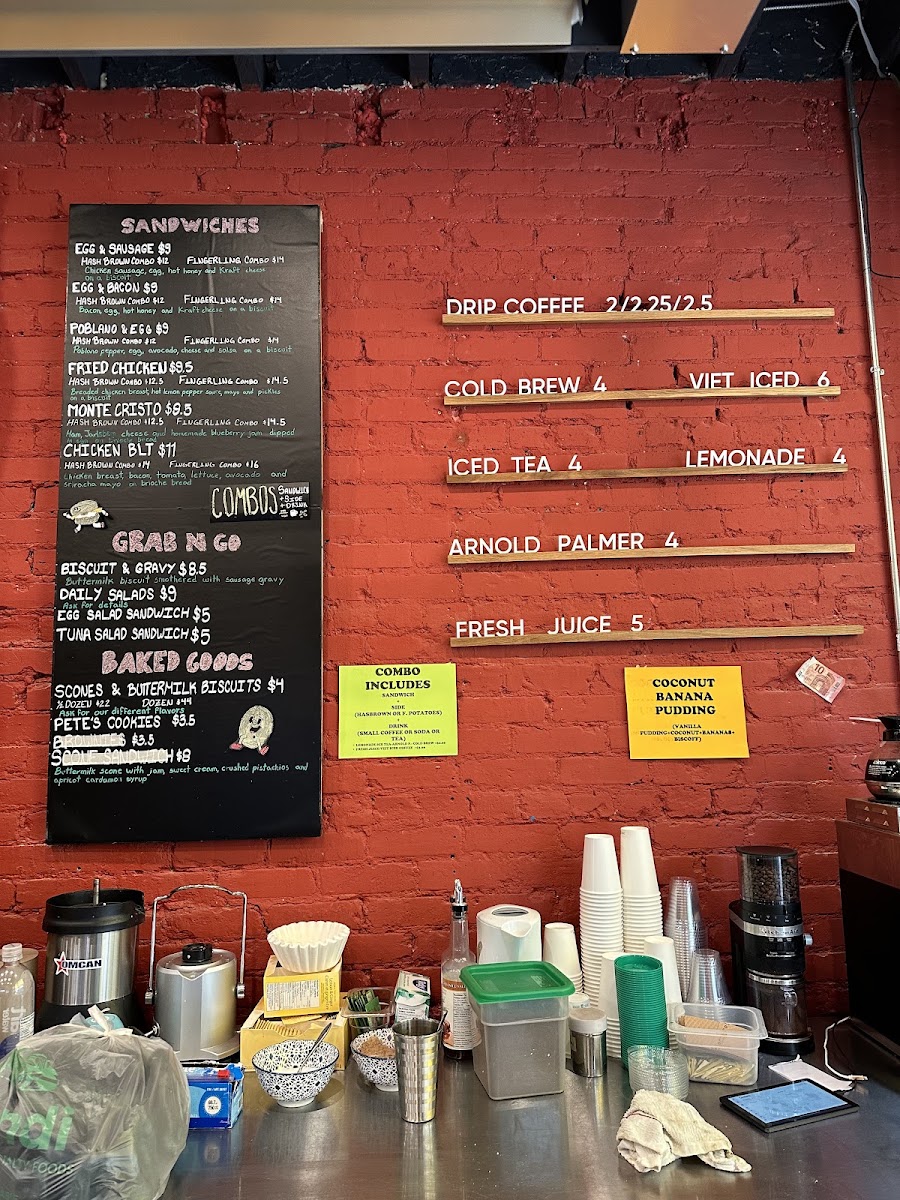 SANDWICHES
EGG & SAUSAGE $9
HASH BROWN COMBO $12 FINGERLING COMBO $14
Chicken sausage, egg, hot honey and Kraft cheese
on a biscuit
EGG & BACON $9
HASH BROWN COMBO $12 FINGERLING COMBO $14
Bacon, egg, hot honey and Kraft cheese on a biscuit
POBLANO & EGG $9
HASH BROWN COMBO $12 FINGERLING COMBO $14
Poblano pepper, egg, avocado, cheese and salsa on a biscuit
FRIED CHICKEN $9.5
HASH BROWN COMBO $12.5 FINGERLING COMBO $14.5
Breaded chicken breast, hot lemon pepper sauce, mayo and pickles
on a biscuit
MONTE CRISTO $9.5
HASH BROWN COMBO $12.5 FINGERLING COMBO $14.5
Ham, Jarlsberg cheese and homemade blueberry jam dipped
CHICKEN BLT $11
HASH BROWN COMBO $14 FINGERLING COMBO $16
chicken breast, bacon, tomato, lettuce, avocado and
sriracha mayo on brioche bread
COMBOS SANDWICH
+ SIDE
+ DRINK
GRAB N GO
BISCUIT & GRAVY $8.5
Buttermilk biscuit smothered with sausage gravy
DAILY SALADS $9
Ask for details
EGG SALAD SANDWICH $5
TUNA SALAD SANDWICH $5
BAKED GOODS
SCONES & BUTTERMILK BISCUITS $4
½ DOZEN $22 DOZEN $44
Ask for our different flavors
PETE'S COOKIES $3.5
BROWNIES $3.5
SCONE SANDWICH $8
Buttermilk scone with jam, sweet cream, crushed pistachios and
apricot cardamom syrup
DRIP COFFEE 2/2.25/2.5
COLD BREW 4 VIET ICED 6
ICED TEA 4 LEMONADE 4
ARNOLD PALMER 4
FRESH JUICE 5
COMBO
INCLUDES
SANDWICH
+
SIDE
(HASBROWN OR F. POTATOES)
+
DRINK
(SMALL COFFEE OR SODA OR
TEA)
COCONUT
BANANA
PUDDING
(VANILLA
PUDDING+COCONUT+BANANAS+
BISCOFF)
10
TOMCAN